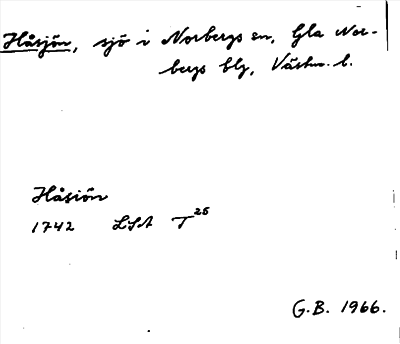 Håsjön, sjö i Norbergs sn, Gla Nor-
bergs blg, Västm. l.
Håsiön
1742 LSA T 25
G.B. 1966.